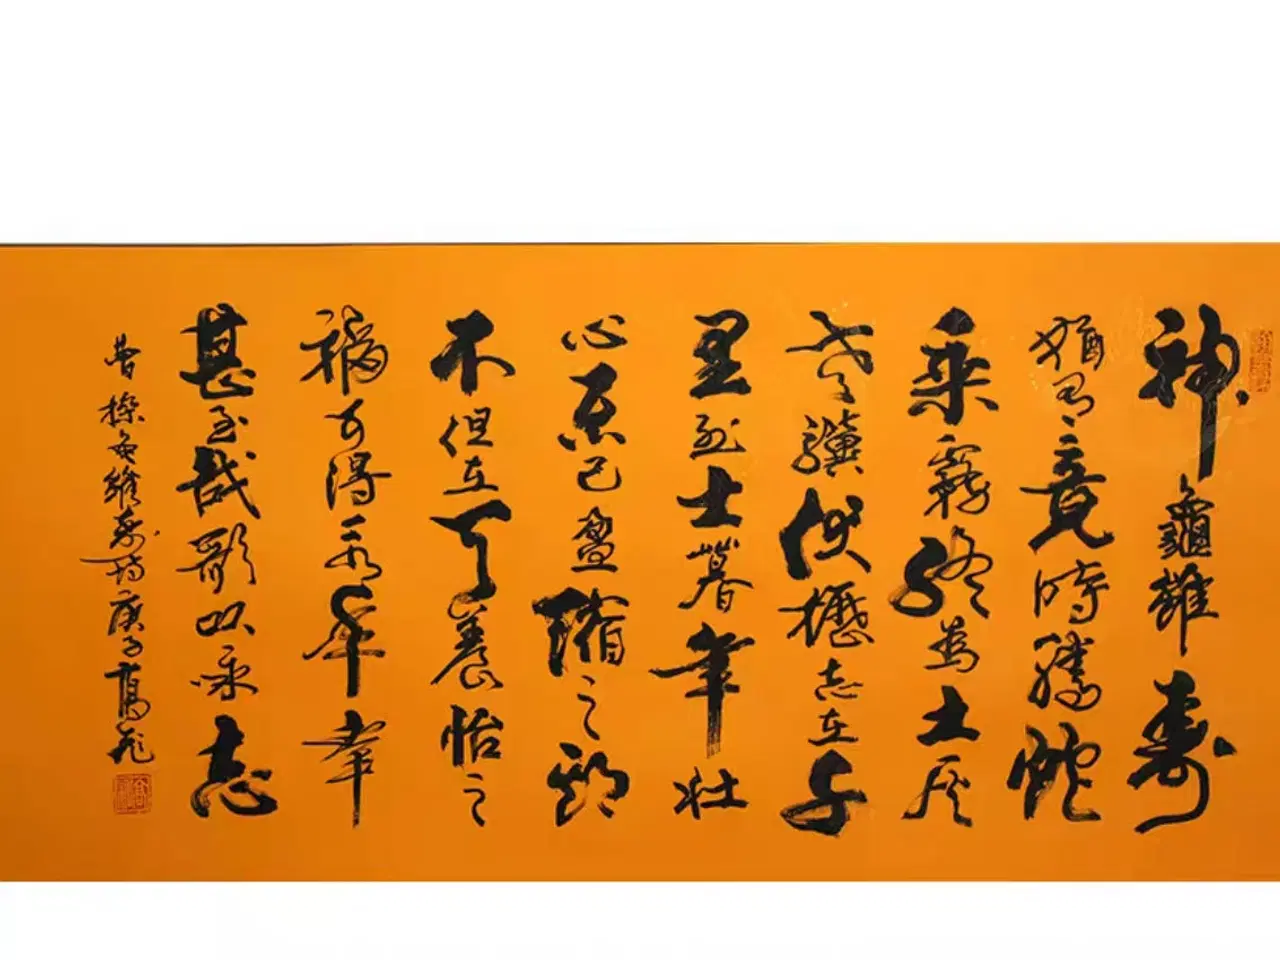 神龜雖壽
猶有竟時騰蛇
乘霧終為土灰
老驥伏櫪志在千
里烈士暮年壯
心不已盈縮之期
不但在天養怡之
福可得永年幸
甚至哉歌以詠志
曹操龜雖壽詩庚子